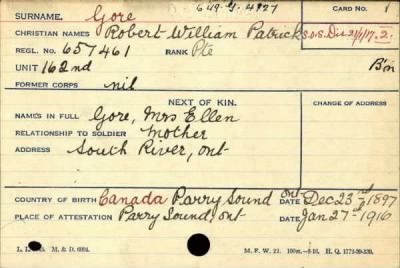 649-G-4927
SURNAME. Gore CARD NO.
CHRISTIAN NAMES Robert William Patrick S.O.S. Dis 21/1/17-2-
REGL. NO. 657461 RANK Pte
UNIT 162nd B'n
FORMER CORPS nil
NEXT OF KIN.
CHANGE OF ADDRESS
NAMES IN FULL Gore, Mrs Ellen
RELATIONSHIP TO SOLDIER Mother
ADDRESS South River, ont
COUNTRY OF BIRTH Canada Parry Sound ont DATE Dec 23rd 1897
PLACE OF ATTESTATION Parry Sound, ont DATE Jan 27th 1916
M. & D. 6094. M.F.W. 22.